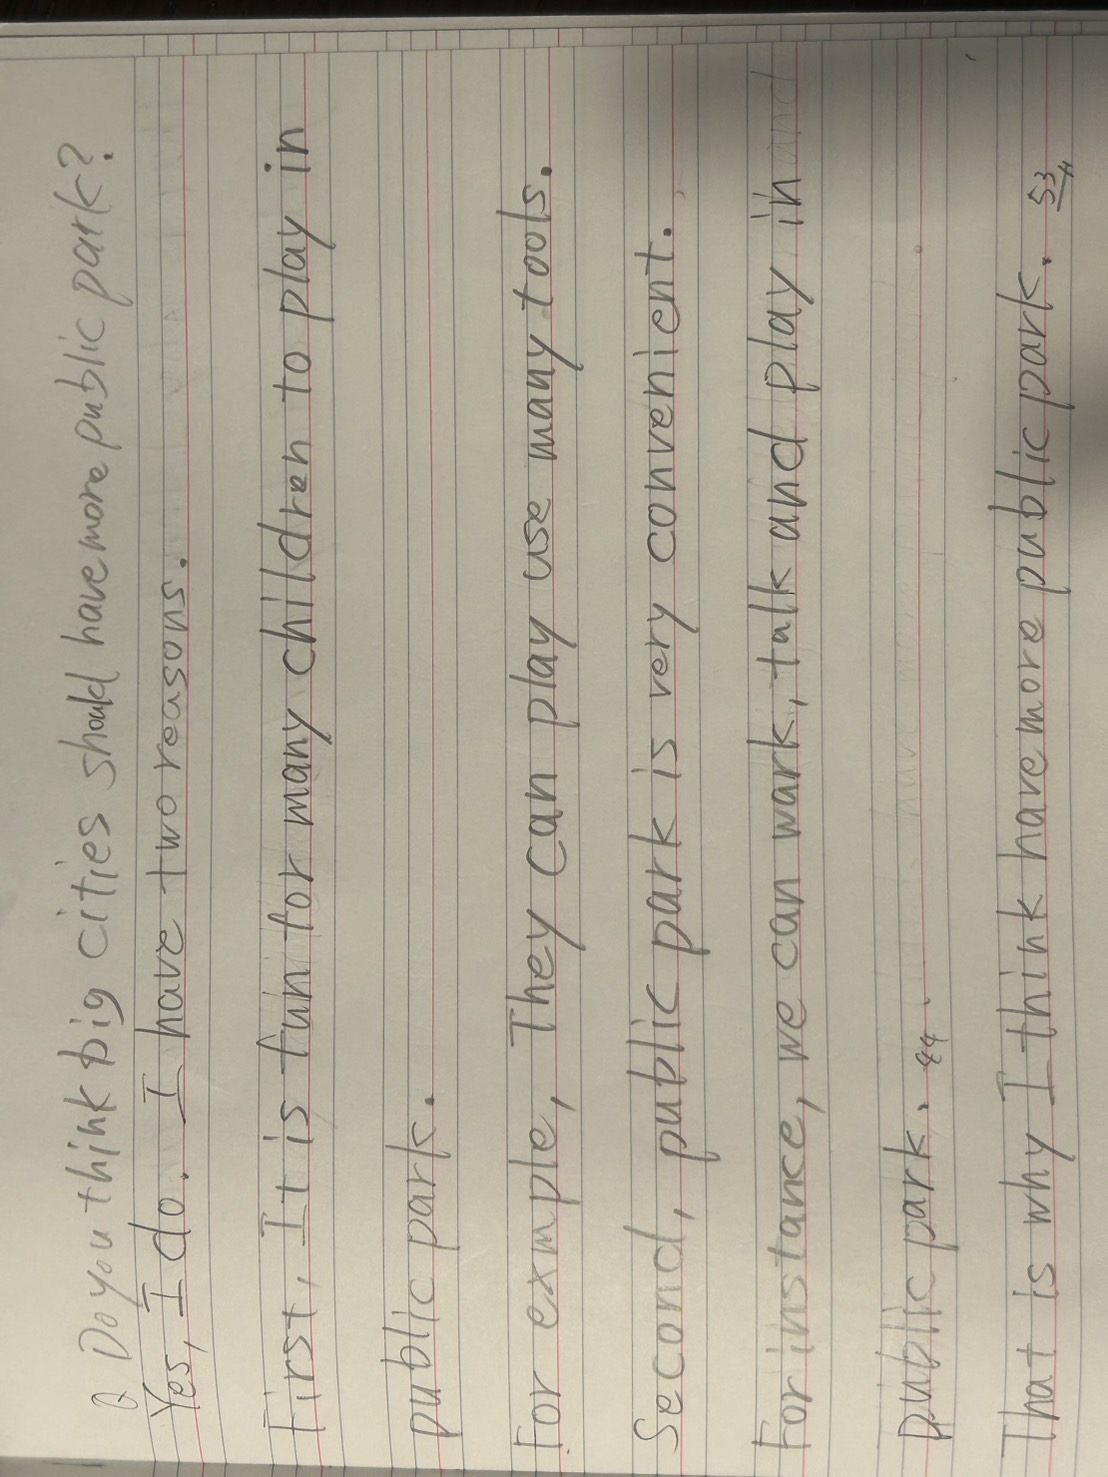 Q Do you think big cities should have more public park?
Yes, I do. I have two reasons.
First, It is fun for many children to play in
public park.
For exmple, They can play use many tools.
Second, public park is very convenient.
For instance, we can wark, talk and play in
public park. 44
That is why I think have more public park. 53